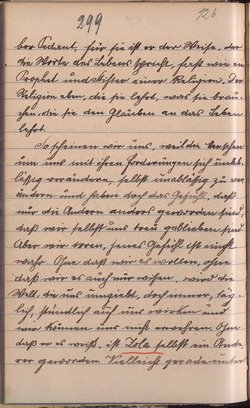 299
126
ber Patent, für sie ist er der Weise, der
die Worte des Lebens spricht, fast wie ein
Prophet und Stifter einer Religion. Der
Religion eben, die sie lehrt, was sie brau-
chen, die sie den Glauben an das Leben
lehrt.
So scheinen wir uns, weil die Menschen
um uns mit ihren Forderungen sich unab-
lässig verändern, selbst unablässig zu ver-
ändern und haben doch das Gefühl, daß
nur die Andern anders geworden sind
daß wir selbst uns treu geblieben sind
Aber wir irren, jenes Gefühl ist nicht
wahr. Ohne daß wir es wollen, ohne
daß wir es auch nur wissen, wird die
Welt, die uns umgiebt, doch immer, täg-
lich, stündlich auf uns wirken und
wir können uns nicht erwehren. Ohne
daß er es weiß, ist Zola selbst ein Ande-
rer geworden. Vielleicht gerade unter